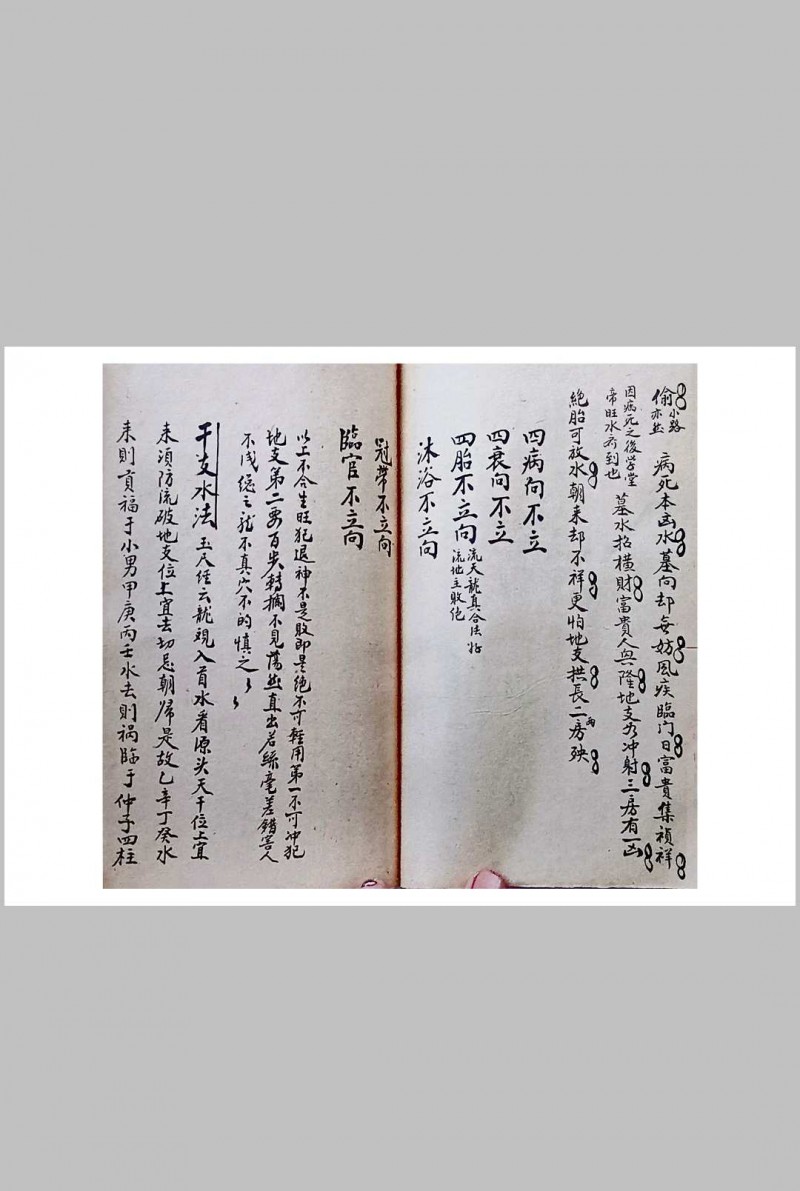 偷小路亦然 病死本凶水墓向却無妨風疾臨门日富貴集禎祥
因病死之後学堂帝旺水有到也 墓水招橫財富貴人興隆地支名冲射三房有一凶
絶胎可放水朝来却不祥更怕地支拱長二房殃
四病向不立
四衰向不立
四胎不立向 流天龍真合法好流地主敗绝
沐浴不立向
冠帶不立向
臨官不立向
以上不合生旺犯退神不是敗即是絶不可輕用第一不可冲犯
地支第二要百步轉擱不見蕩然直出若絲毫差錯害人
不浅緫之龍不真穴不的慎之
干支水法 玉尺经云龍观入首水看源头天干位上宜
来須防流破地支位上宜去切忌朝歸是故乙辛丁癸水
来則貢福于小男甲庚丙壬水去則祸臨于仲子四柱